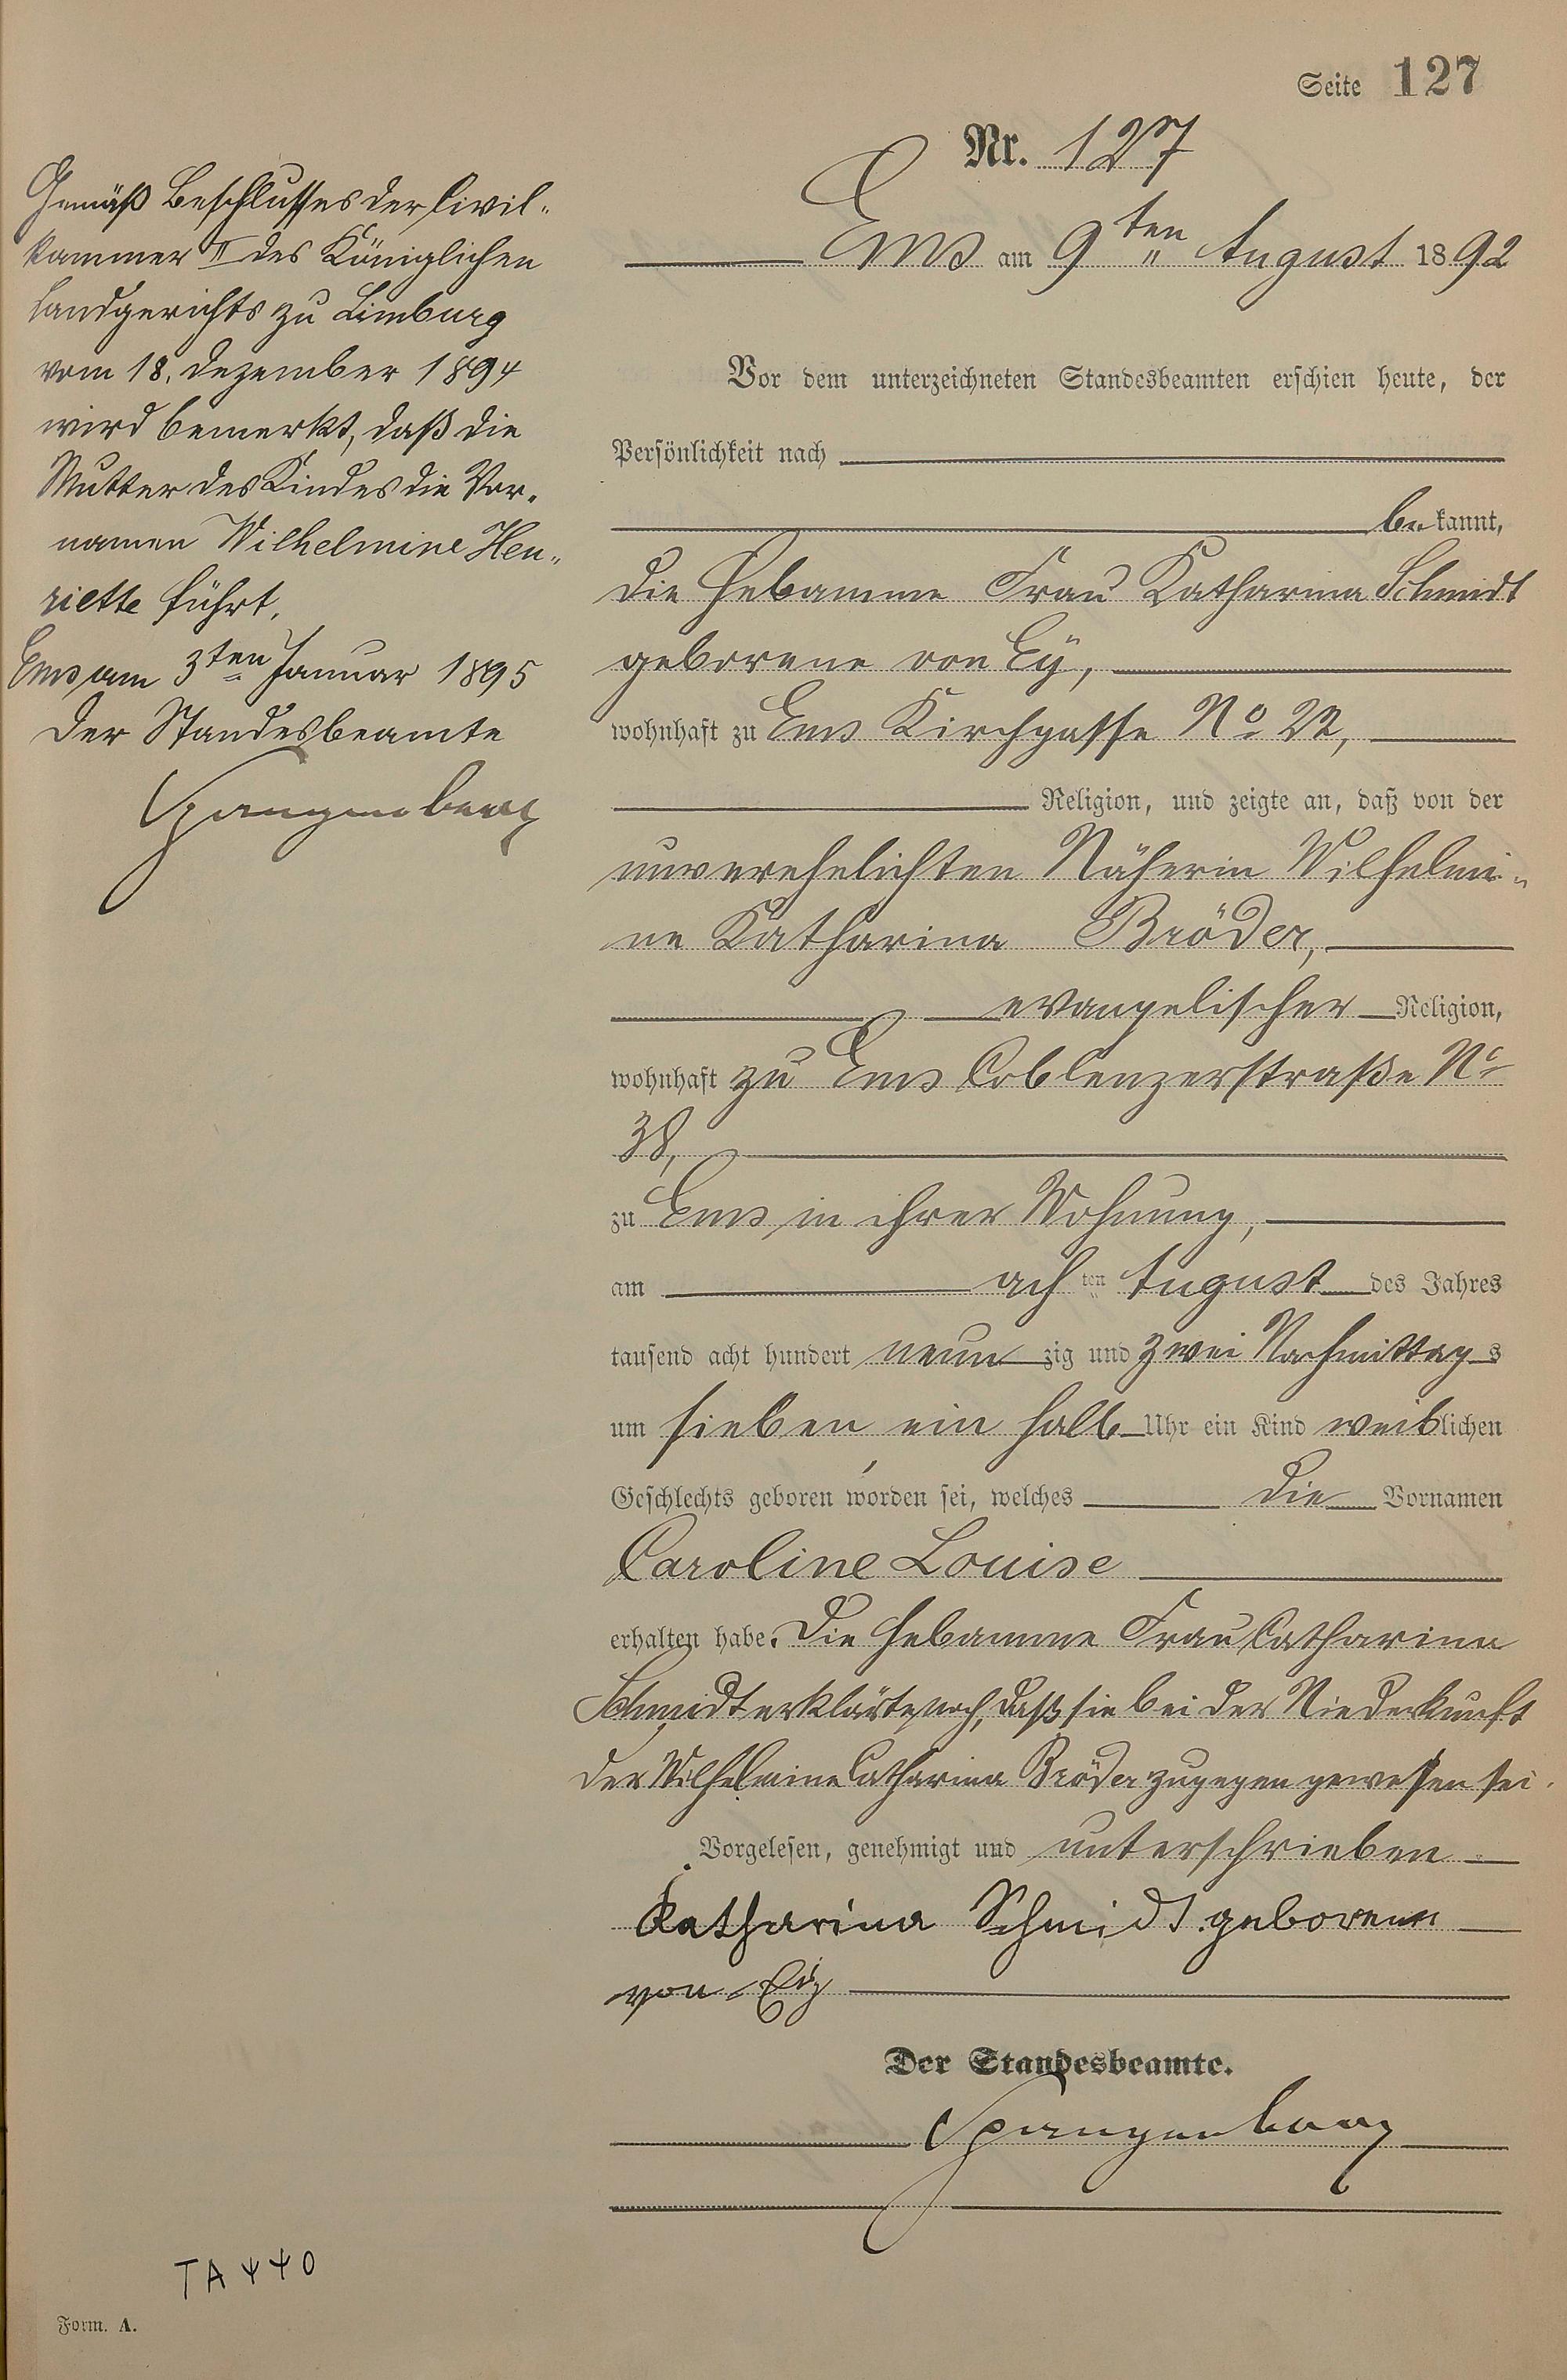 Seite 127
Nr. 127
Ems am 9ten August 1892
Vor dem unterzeichneten Standesbeamten erschien heute, der
Persönlichkeit nach
bekannt,
die Hebamme Frau Katharina Schmidt
geborene von Eÿ,
wohnhaft zu Ems Kirchgasse No 22,
Religion, und zeigte an, daß von der
unverehelichten Näherin Wilhelmi-
ne Katharina Bröder,
evangelischer Religion,
wohnhaft zu Ems Coblenzerstraße No
38,
zu Ems in ihrer Wohnung,
am achten August des Jahres
tausend acht hundert neunzig und zwei Nachmittags
um sieben ein halb Uhr ein Kind weiblichen
Geschlechts geboren worden sei, welches die Vornamen
Caroline Louise
erhalten habe. Die Hebamme Frau Catharina
Schmidt erklärte noch, daß sie bei der Niederkunft
der Wilhelmine Catharina Bröder zugegen gewesen sei.
Vorgelesen, genehmigt und unterschrieben
Katharina Schmidt geborene
von
Der Standesbeamte.
Spangenberg
Gemäß Beschlusses der Civil-
kammer II des Königlichen
Landgerichts zu Limburg
vom 18. Dezember 1894
wird bemerkt, daß die
Mutter des Kindes die Vor-
namen Wilhelmine Hen-
riette führt.
Ems am 3ten Januar 1895
Der Standesbeamte
Spangenberg
TA 440
Form. A.